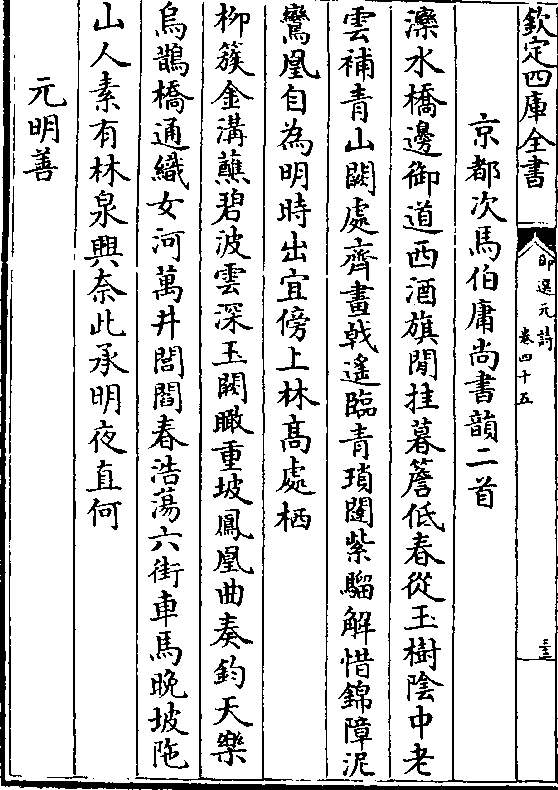 欽定四庫全書
御選元詩
卷四十五
京都次馬伯庸尚書韻二首
灤水橋邊御道西酒旗閒挂暮簷低春從玉樹陰中老
雲補青山闕處齊畫戟遙臨青瑣闥紫騮解惜錦障泥
鸞凰自為明時出宜傍上林髙處栖
栁簇金溝蘸碧波雲深玉闕瞰重坡鳳凰曲奏鈞天樂
烏鵲橋通織女河萬井閭閻春浩蕩六街車馬晚坡陁
山人素有林泉興奈此承明夜直何
元明善